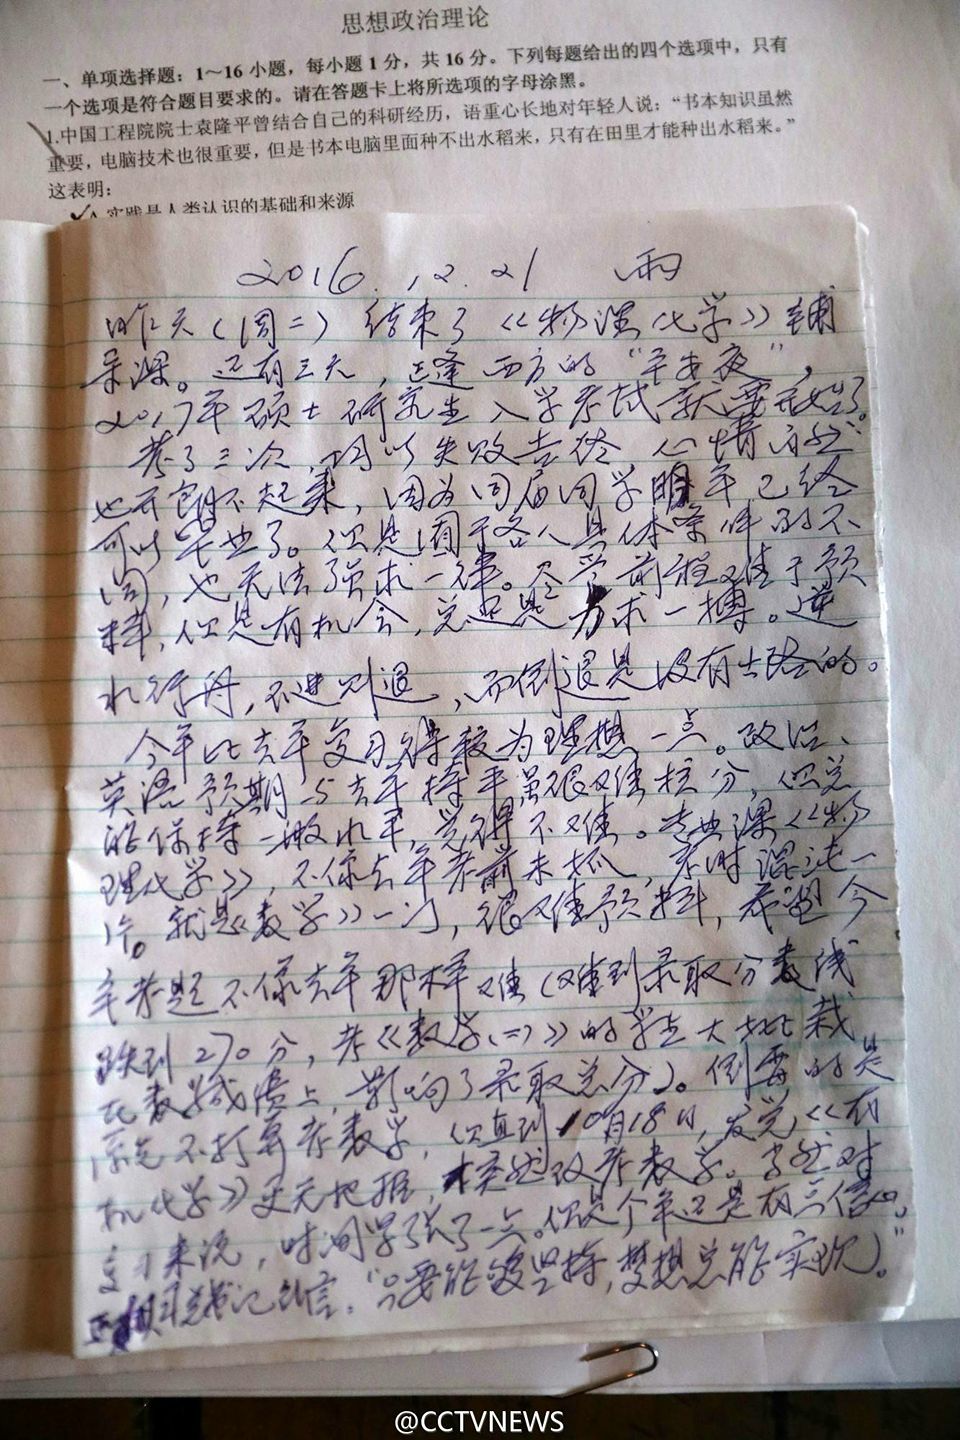 思想政治理论
一、单项选择题：1～16小题，每小题1分，共16分。下列每题给出的四个选项中，只有
一个选项是符合题目要求的。请在答题卡上将所选项的字母涂黑。
1.中国工程院院士袁隆平曾结合自己的科研经历，语重心长地对年轻人说：“书本知识虽然
重要，电脑技术也很重要，但是书本电脑里面种不出水稻来，只有在田里才能种出水稻来。”
这表明：
A.实践是人类认识的基础和来源
2016.12.21 雨
昨天（周二）结束了《物理化学》辅
导课。还有三天，正逢西方的“平安夜”，
2017年硕士研究生入学考试就要开始了。
考了三次，均以失败告终 心情自然
也开朗不起来，因为同届同学明年已经
可以毕业了。但是囿于各人具体条件的不
同，也无法强求一律。尽管前程难于预
料，但是有机会，总是力求一搏。逆
水行舟，不进则退，而倒退是没有出路的。
今年比去年复习得较为理想一点。政治、
英语预期与去年持平虽很难核分，但总
能保持一般水平，觉得不难。专业课《物
理化学》，不像去年考前未抓，考时混沌一
片。就是《数学》一门，很难预料，希望今
年考题不像去年那样难（难到录取分数线
跌到270分，考《数学(二)》的学生大都栽
在数学成绩上，影响了录取总分）。倒霉的是
原先不打算考数学，但直到10月18日，发觉《有
机化学》更无把握，横然改考数学。当然对
复习来说，时间紧张了一点。但是今年还是有三信心。
习总书记的言：“只要能够坚持，梦想总能实现。”
@CCTVNEWS